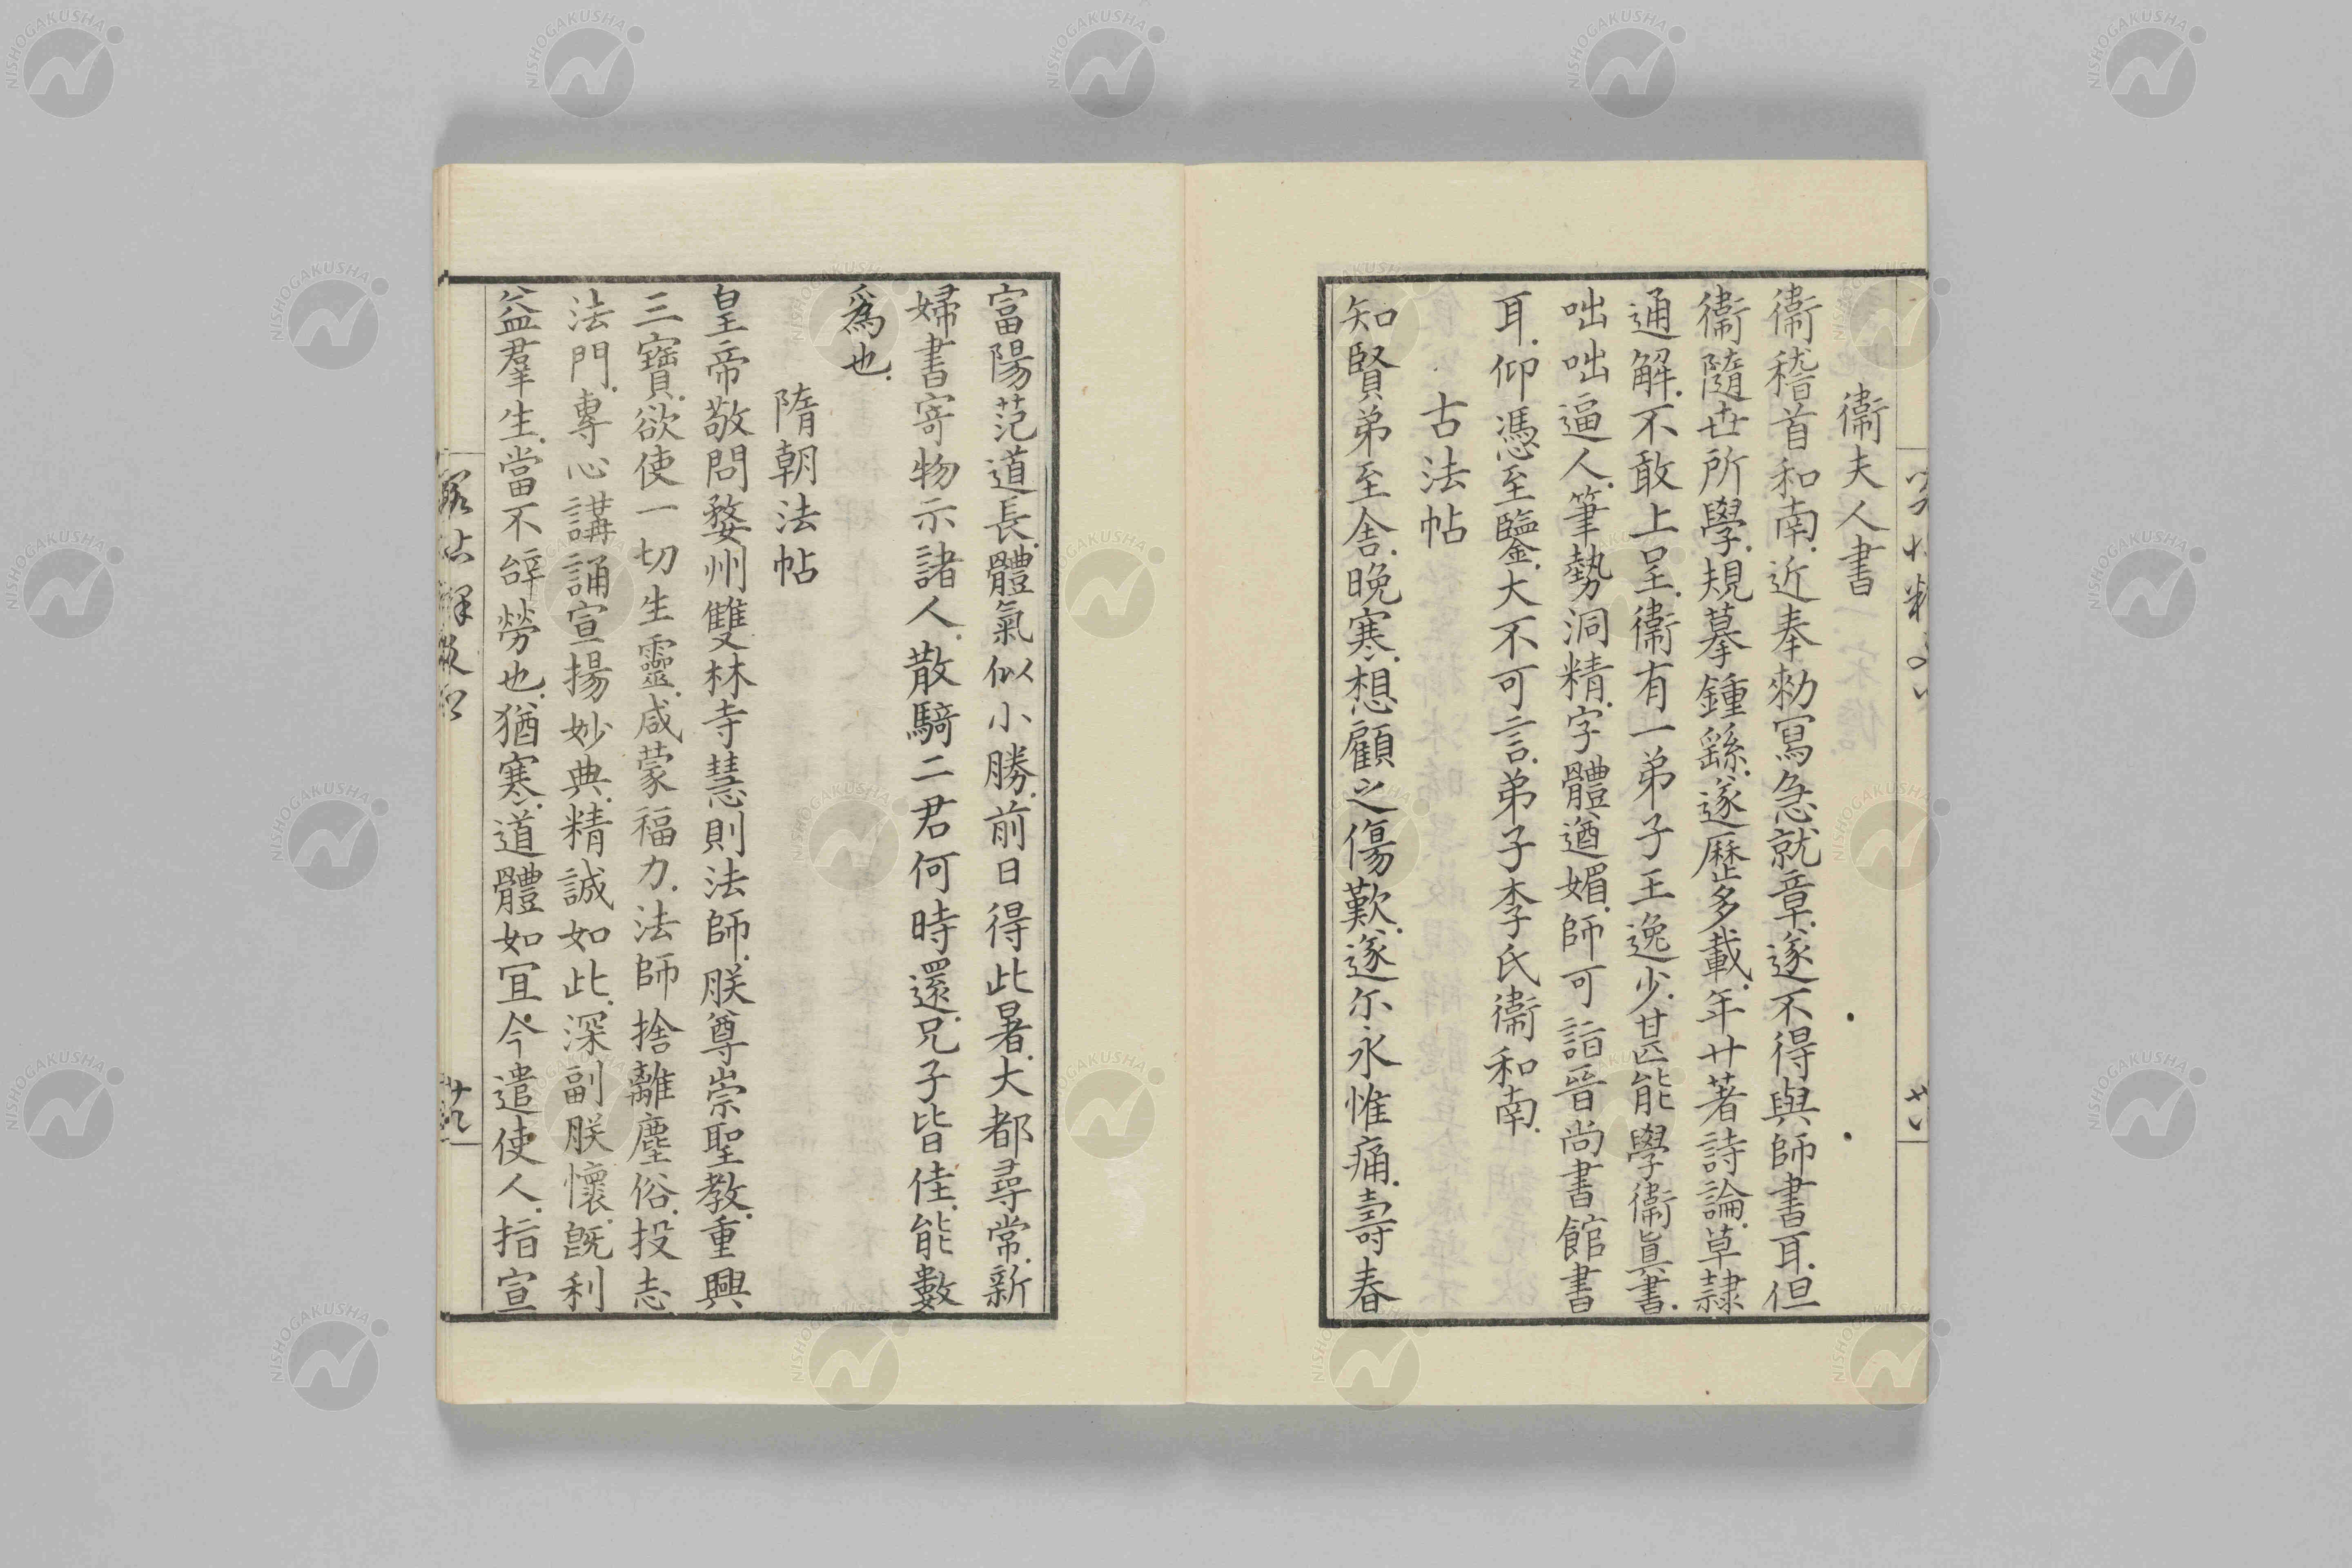 衞夫人書
衞稽首和南.近奉勑寫急就章.遂不得與師書耳.但
衞隨世所學.規摹鍾繇.遂歷多載.年廿著詩論.草隷
通解.不敢上呈.衞有一弟子王逸少.甚能學衞眞書.
咄咄逼人.筆勢洞精.字體遒媚.師可詣晉尚書館書
耳.仰憑至鑒.大不可言.弟子李氏衞和南.
古法帖
知賢弟至舍.晚寒.想顧之傷歎.遂尓永惟痛.壽春
富陽范道長.體氣似小勝.前日得此暑.大都尋常.新
婦書寄物示諸人.散騎二君何時還.兄子皆佳.能數
爲也.
隋朝法帖
皇帝敬問婺州雙林寺慧則法師.朕尊崇聖教.重興
三寶.欲使一切生靈.咸蒙福力.法師捨離塵俗.投志
法門.專心講誦宣揚妙典.精誠如此.深副朕懷.旣利
益羣生.當不辝勞也.猶寒.道體如宜.今遣使人.指宣
NISHOGAKUSHA